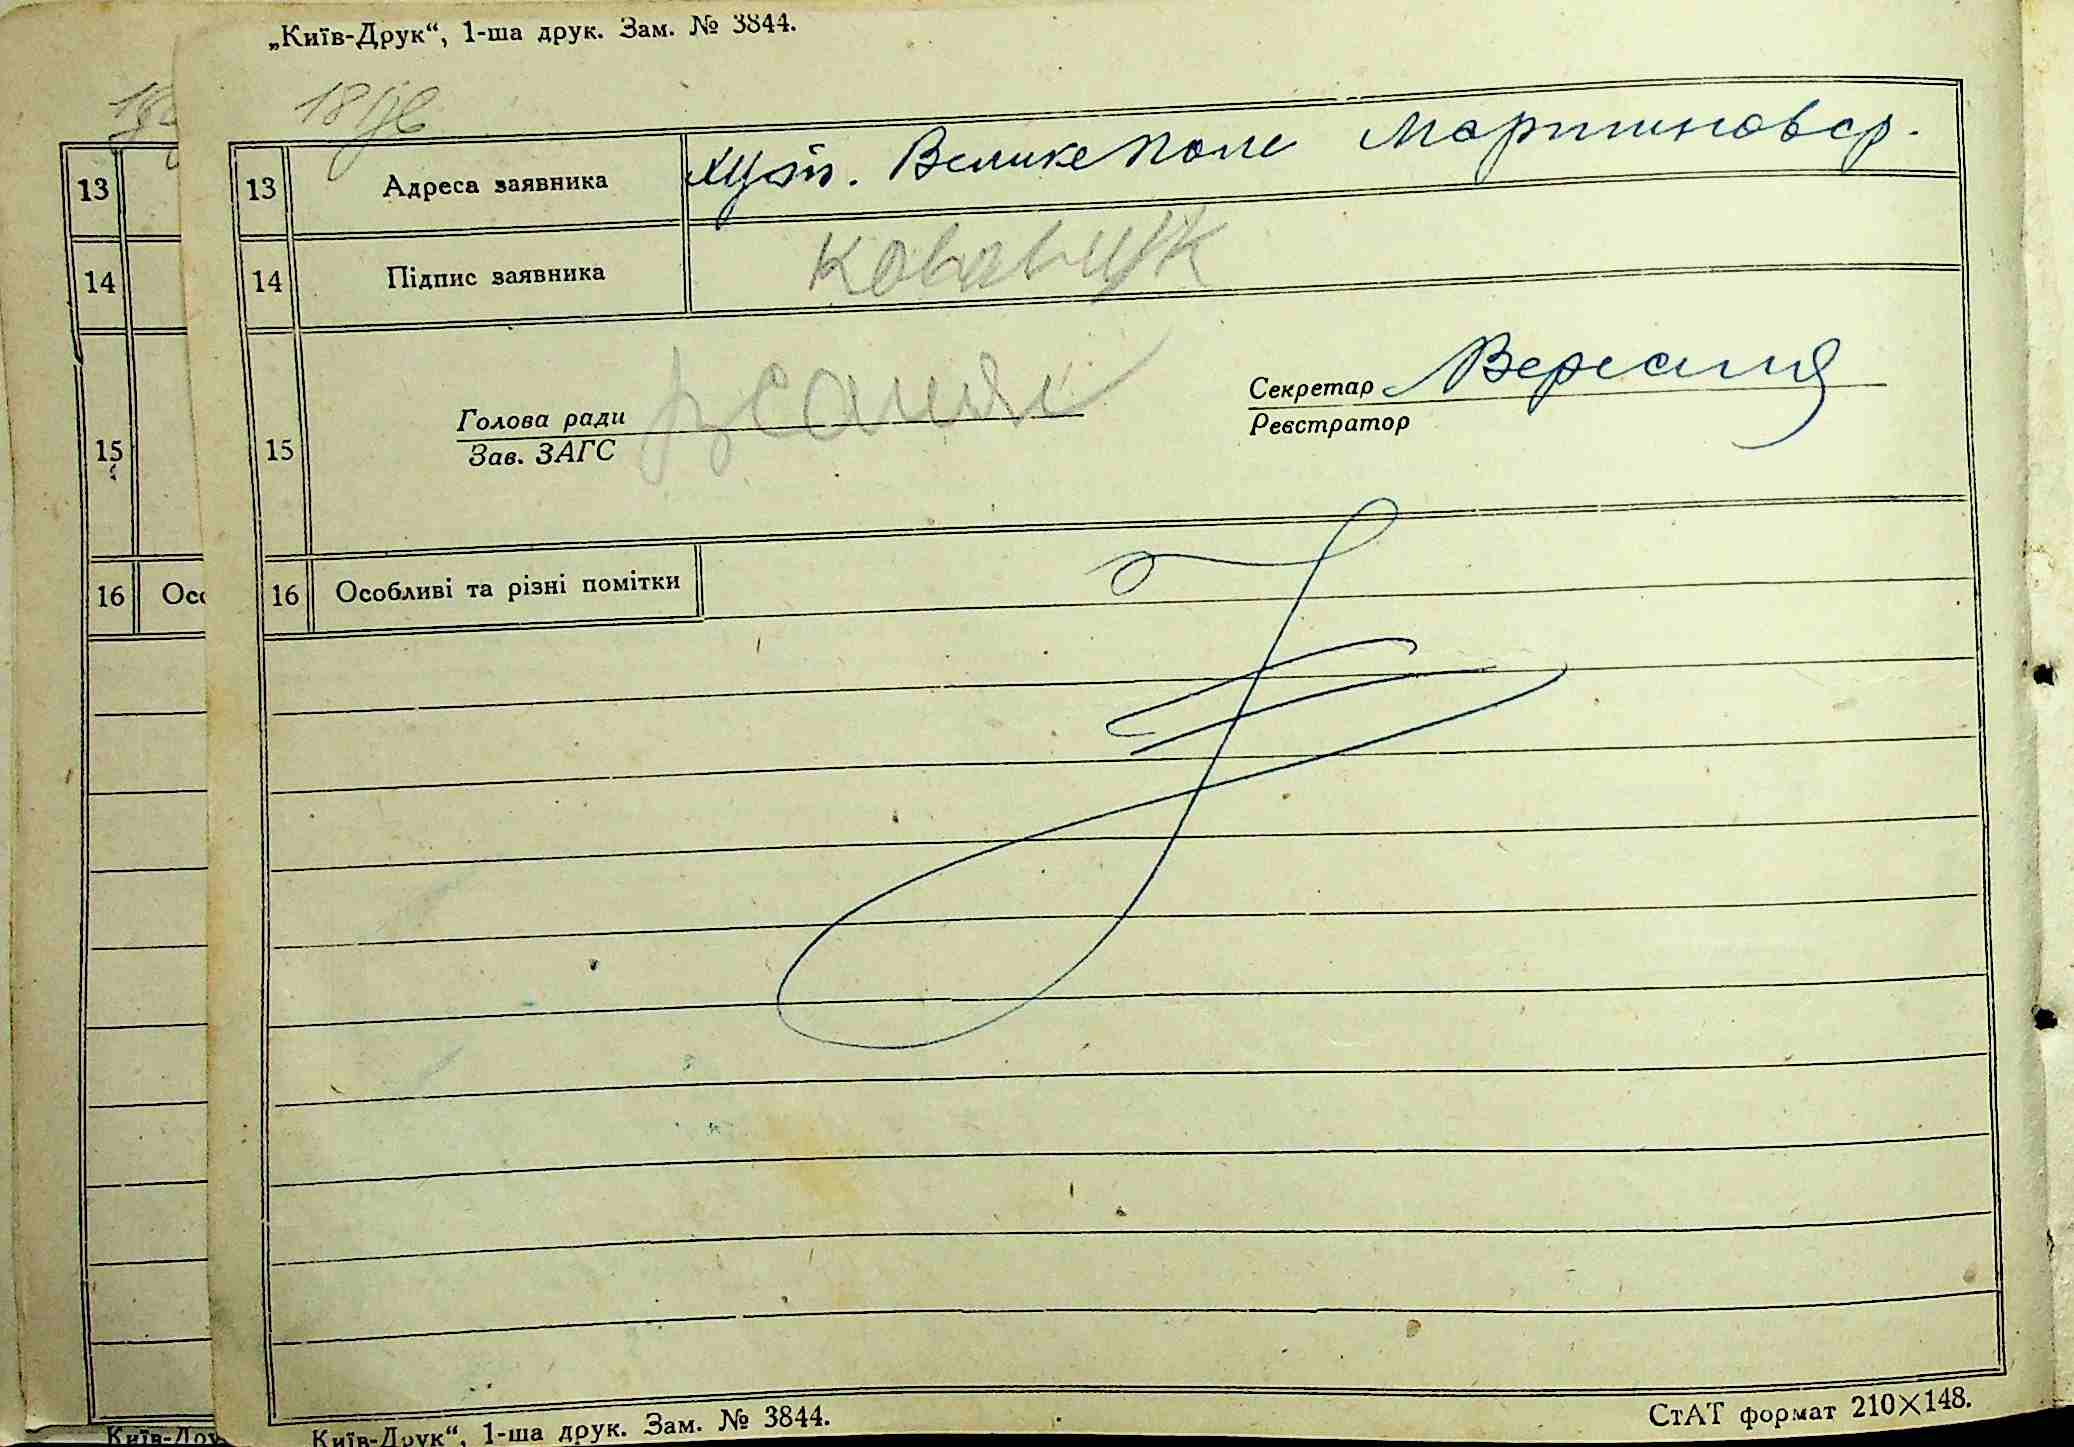 „Київ-Друк“, 1-ша друк. Зам. № 3844.
13 13 Адреса заявника хут. Великеполе Мартиновср.
14 14 Підпис заявника Ковальчук
15 15 Голова ради
Зав. ЗАГС
Секретар
Реєстратор
16 Осо 16 Особливі та різні помітки
Київ-Дру Київ-Друк“, 1-ша друк. Зам. № 3844. СтАТ формат 210×148.